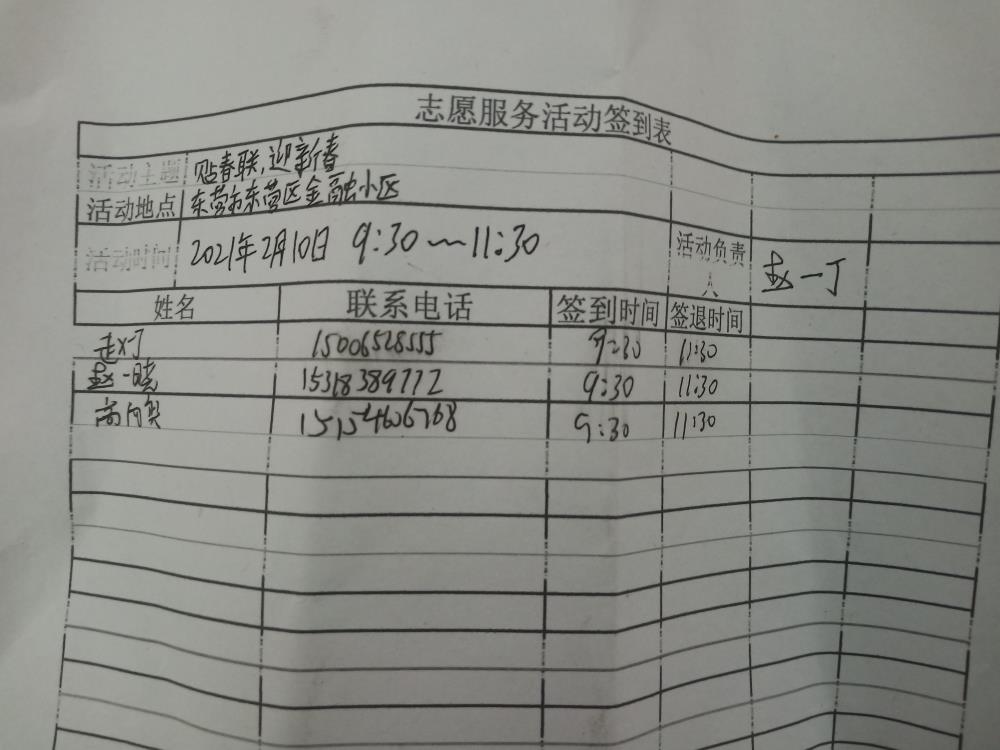 志愿服务活动签到表
活动主题 贴春联,迎新春
活动地点 东营市东营区金融小区
活动时间 2021年2月10日 9:30~11:30 活动负责人 赵一丁
姓名 联系电话 签到时间 签退时间
15006528555 9:30 11:30
赵一晓 15318389772 9:30 11:30
15154606768 9:30 11:30